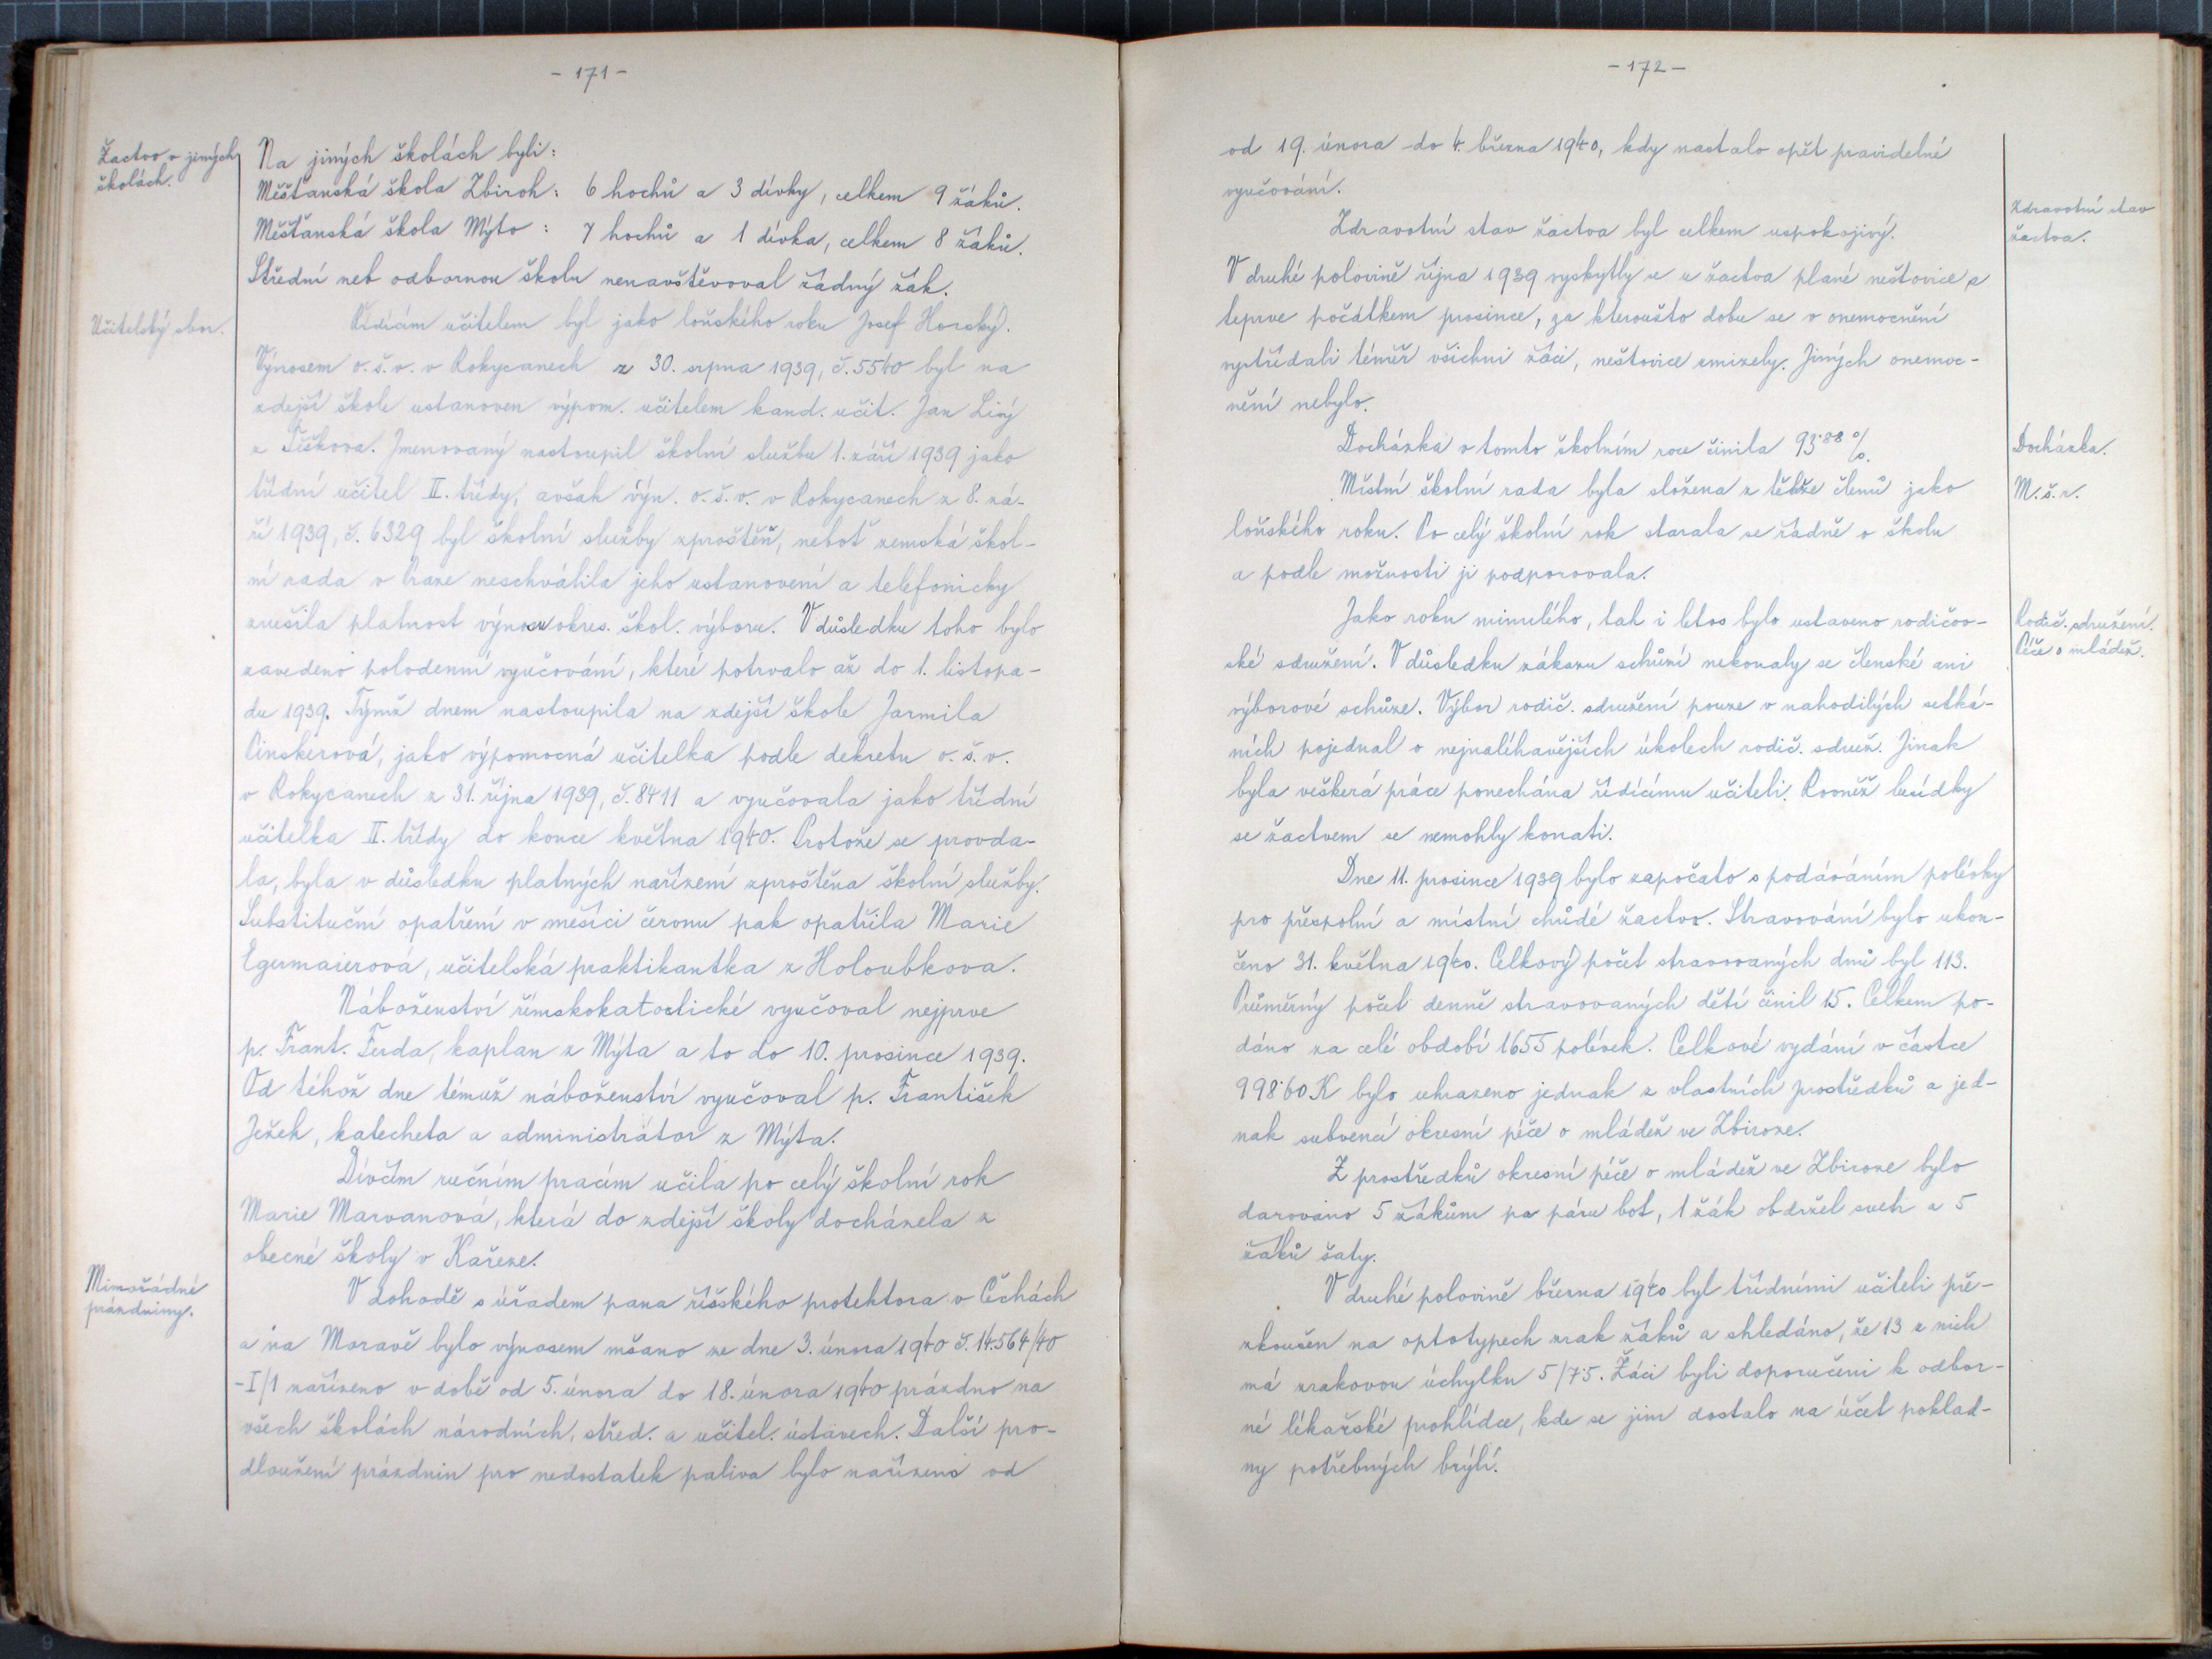 - 171 -
Žactvo v jiných
školách.
Na jiných školách byli:
Měšťanská škola Zbiroh: 6 hochů a 3 dívky, celkem 9 žáků.
Měšťanská škola Mýto: 7 hochů a 1 dívka, celkem 8 žáků.
Střední neb odbornou školu nenavštěvoval žádný žák.
Učitelský sbor.
Řídícím učitelem byl jako loňského roku Josef Horský.
Výnosem o. š. v. v Rokycanech z 30. srpna 1939, č. 5540 byl na
zdejší škole ustanoven výpom. učitelem kand. učit. Jan Livý
z Těškova. Jmenovaný nastoupil školní službu 1. září 1939 jako
třídní učitel II. třídy, avšak výn. o. š. v. v Rokycanech z 8. zá-
ří 1939, č. 6329 byl školní služby zproštěn, neboť zemská škol-
ní rada v Praze neschválila jeho ustanovení a telefonicky
zrušila platnost výnosu okres. škol. výboru. V důsledku toho bylo
zavedeno polodenní vyučování, které potrvalo až do 1. listopa-
du 1939. Týmž dnem nastoupila na zdejší škole Jarmila
Pinskerová, jako výpomocná učitelka podle dekretu o. š. v.
v Rokycanech z 31. října 1939, č. 8411 a vyučovala jako třídní
učitelka II. třídy do konce května 1940. Protože se provda-
la, byla v důsledku platných nařízení zproštěna školní služby.
Substituční opatření v měsíci červnu pak opatřila Marie
Egermaierová, učitelská praktikantka z Holoubkova.
Náboženství římskokatolické vyučoval nejprve
p. Frant. Ferda, kaplan z Mýta a to do 10. prosince 1939.
Od téhož dne témuž náboženství vyučoval p. František
Ježek, katecheta a administrátor z Mýta.
Dívčím ručním pracím učila po celý školní rok
Marie Marvanová, která do zdejší školy docházela z
obecné školy v Kařeze.
Mimořádné
prázdniny.
V dohodě s úřadem pana říšského protektora v Čechách
a na Moravě bylo výnosem mšano ze dne 3. února 1940 č. 14.564/40
-I/1 nařízeno v době od 5. února do 18. února 1940 prázdno na
všech školách národních, střed. a učitel. ústavech. Další pro-
dloužení prázdnin pro nedostatek paliva bylo nařízeno od
- 172 -
od 19. února do 4. března 1940, kdy nastalo opět pravidelné
vyučování.
Zdravotní stav
žactva.
Zdravotní stav žactva byl celkem uspokojivý.
V druhé polovině října 1939 vyskytly se u žactva plané neštovice a
teprve počátkem prosince, za kteroužto dobu se v onemocnění
vystřídali téměř všichni žáci, neštovice zmizely. Jiných onemoc-
nění nebylo.
Docházka.
Docházka v tomto školním roce činila 93·88 %.
M. š. r.
Místní školní rada byla složena z těchže členů jako
loňského roku. Po celý školní rok starala se řádně o školu
a podle možnosti ji podporovala.
Rodič. sdružení.
Péče o mládež.
Jako roku minulého, tak i letos bylo ustaveno rodičov-
ské sdružení. V důsledku zákazu schůzí nekonaly se členské ani
výborové schůze. Výbor rodič. sdružení pouze v nahodilých setká-
ních pojednal o nejnaléhavějších úkolech rodič. sdruž. Jinak
byla veškerá práce ponechána řídícímu učiteli. Rovněž besídky
se žactvem se nemohly konati.
Dne 11. prosince 1939 bylo započato s podáváním polévky
pro přespolní a místní chudé žactvo. Stravování bylo ukon-
čeno 31. května 1940. Celkový počet stravovaných dnů byl 113.
Průměrný počet denně stravovaných dětí činil 15. Celkem po-
dáno za celé období 1655 polévek. Celkové vydání v částce
998·60 K bylo uhrazeno jednak z vlastních prostředků a jed-
nak subvencí okresní péče o mládež ve Zbiroze.
Z prostředků okresní péče o mládež ve Zbiroze bylo
darováno 5 žákům po páru bot, 1 žák obdržel svetr a 5
žáků šaty.
V druhé polovině března 1940 byl třídními učiteli pře-
zkoušen na optotypech zrak žáků a shledáno, že 13 z nich
má zrakovou úchylku 5/7·5. Žáci byli doporučeni k odbor-
né lékařské prohlídce, kde se jim dostalo na účet poklad-
ny potřebných brýlí.